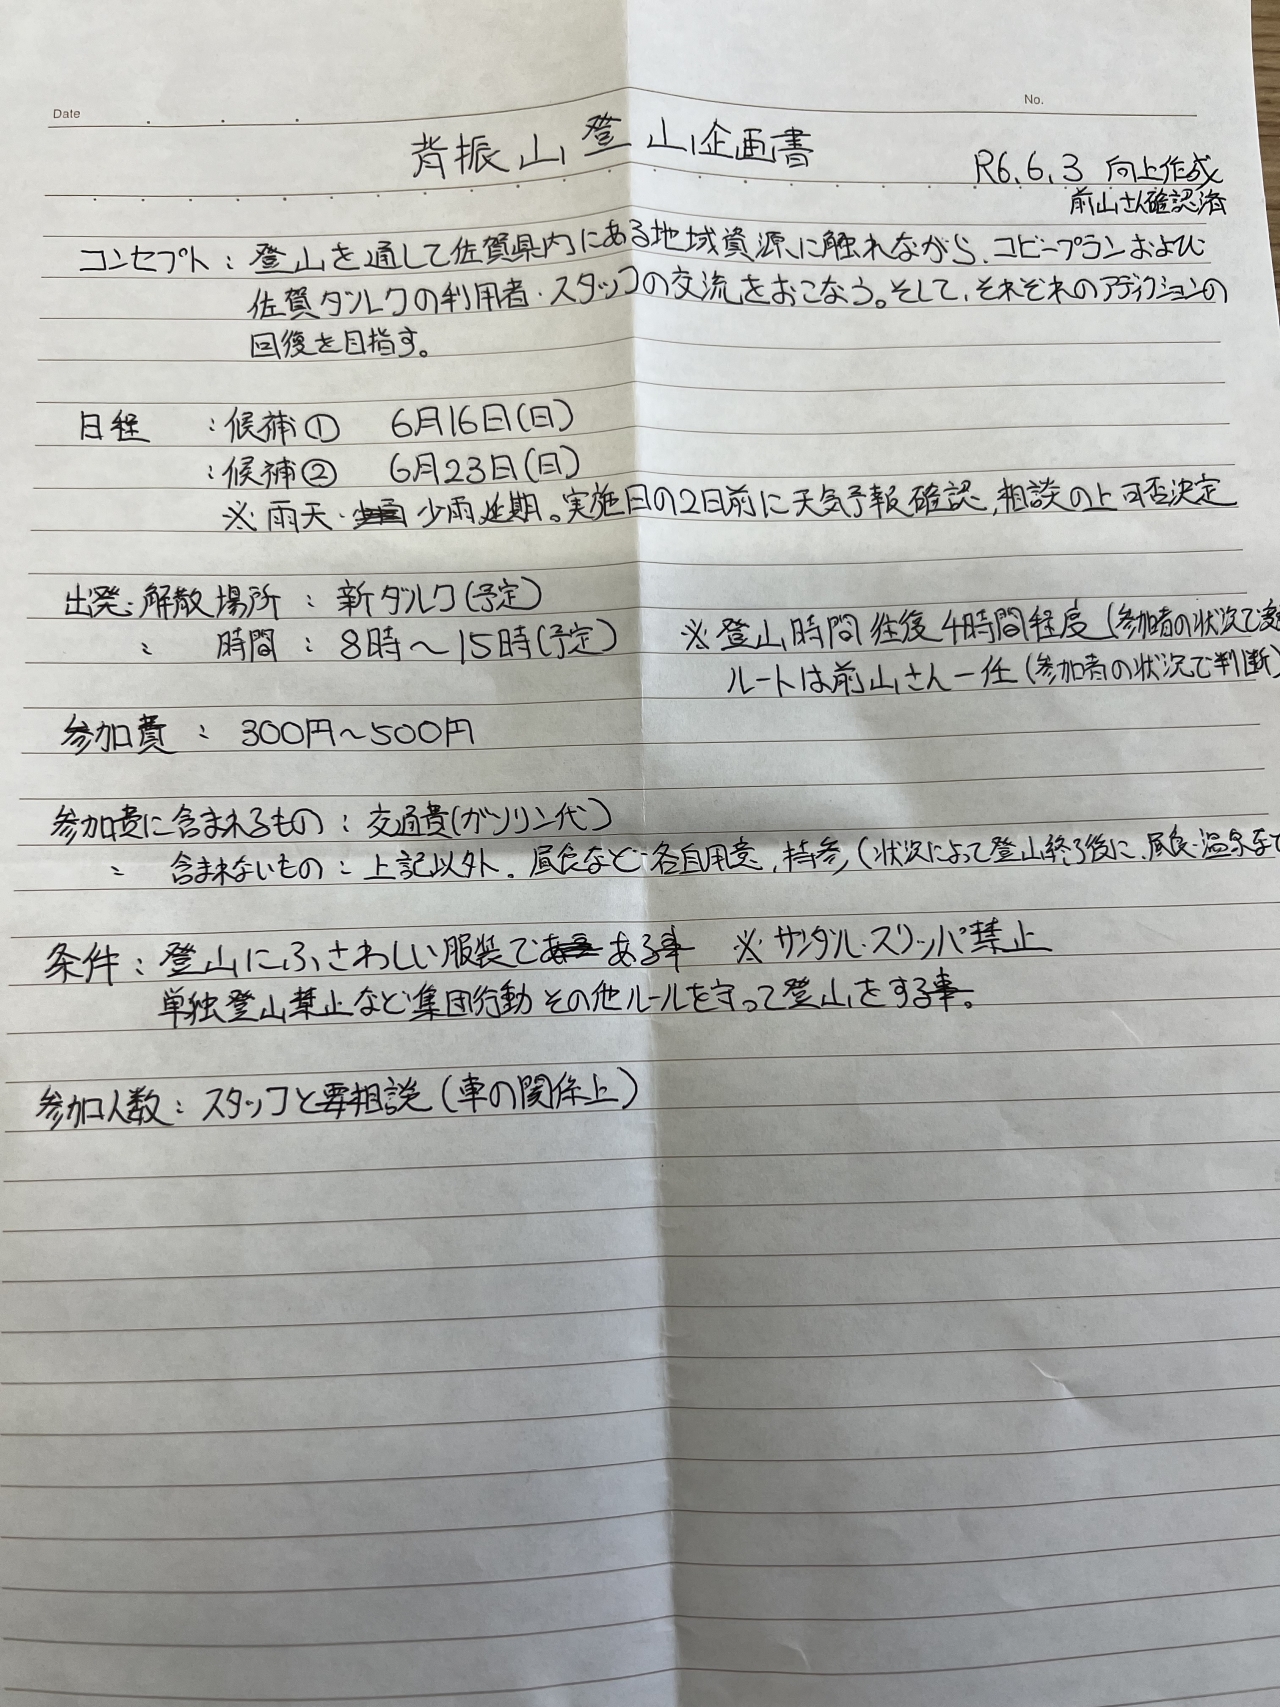 Date
No.
背振山登山企画書
R6.6.3 向上作成
前山さん確認済
コンセプト：登山を通して佐賀県内にある地域資源に触れながら、コビープランおよび
佐賀ダルクの利用者・スタッフの交流をおこなう。そして、それぞれのアディクションの
回復を目指す。
日程 ：候補① 6月16日(日)
：候補② 6月23日(日)
※雨天・少雨延期。実施日の2日前に天気予報確認、相談の上可否決定
出発・解散場所：新ダルク(予定)
〃 時間：8時～15時(予定) ※登山時間往復4時間程度(参加者の状況で変
ルートは前山さん一任(参加者の状況で判断)
参加費：300円～500円
参加費に含まれるもの：交通費(ガソリン代)
〃 含まれないもの：上記以外。昼食など各自用意、持参(状況によって登山終了後に、昼食・温泉など
条件：登山にふさわしい服装である事 ※サンダル・スリッパ禁止
単独登山禁止など集団行動その他ルールを守って登山をする事。
参加人数：スタッフと要相談(車の関係上)